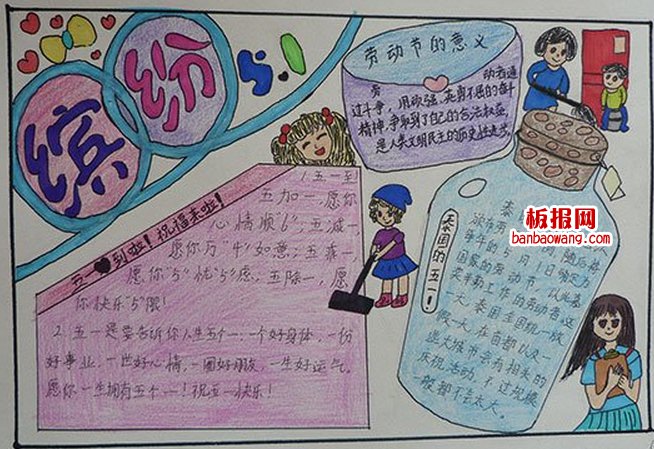 缤
纷
5.1
劳动节的意义
劳 动者通
过斗争,用顽强、英勇不屈的奋斗
精神,争取到了自己的合法权益,
是人类文明民主的历史性进步。
五一❤到啦!祝福来啦!
1.五一到
五加一,愿你
心情顺"6",五减一,
愿你万"4"如意,五乘一,
愿你"5"忧"5"虑,五除一,愿
你快乐"5"限!
2.五一是要告诉你人生五个一:一个好身体,一份
好事业,一世好心情,一圈好朋友,一生好运气。
愿你一生拥有五个一!祝五一快乐!
泰国的五一!
泰
每年的5月 日确定为
国家的劳动节,以此慰
劳辛勤工作的劳动者。这
一天,泰国全国统一放
假一天,在首都以及一
些大城市会有相关的
庆祝活动,不过规模
一般都不会太大。
板报网
banbaowang.com